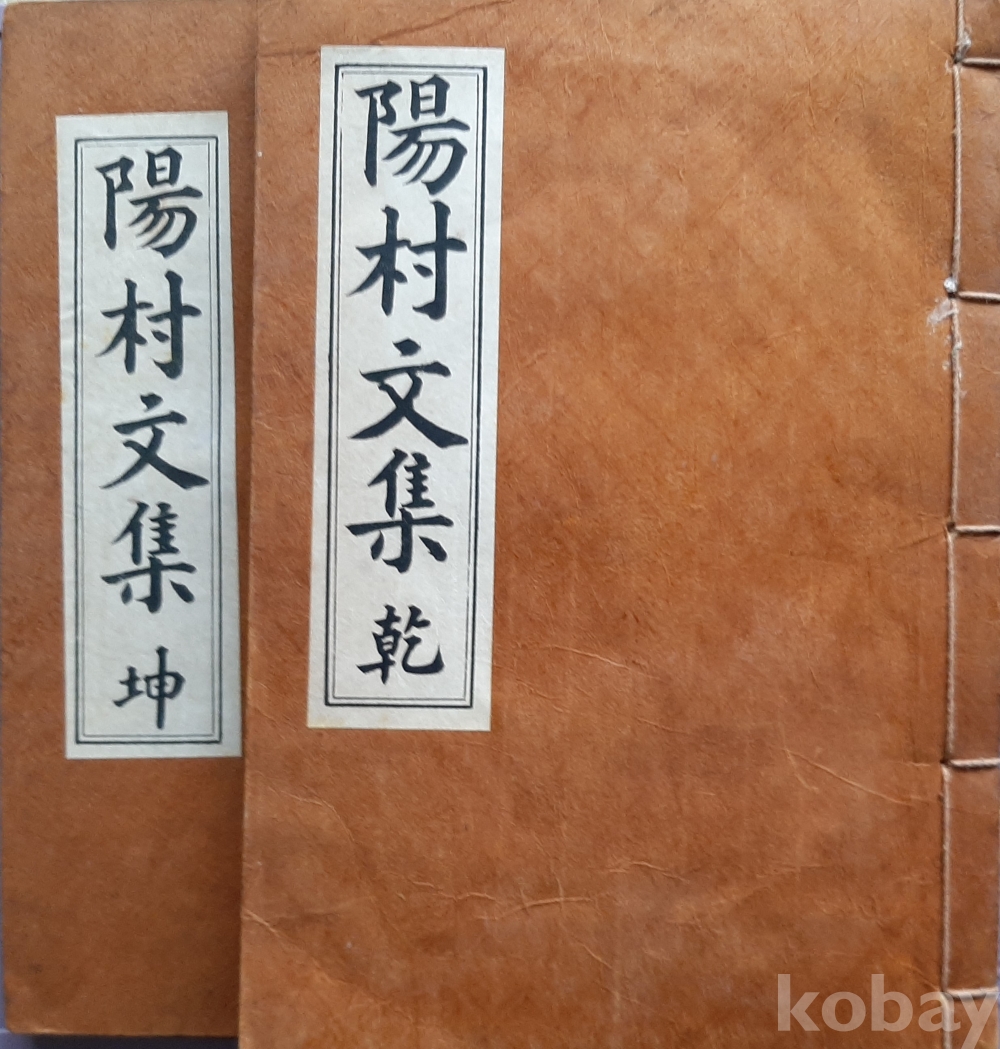 陽村文集 乾
陽村文集 坤
kobay